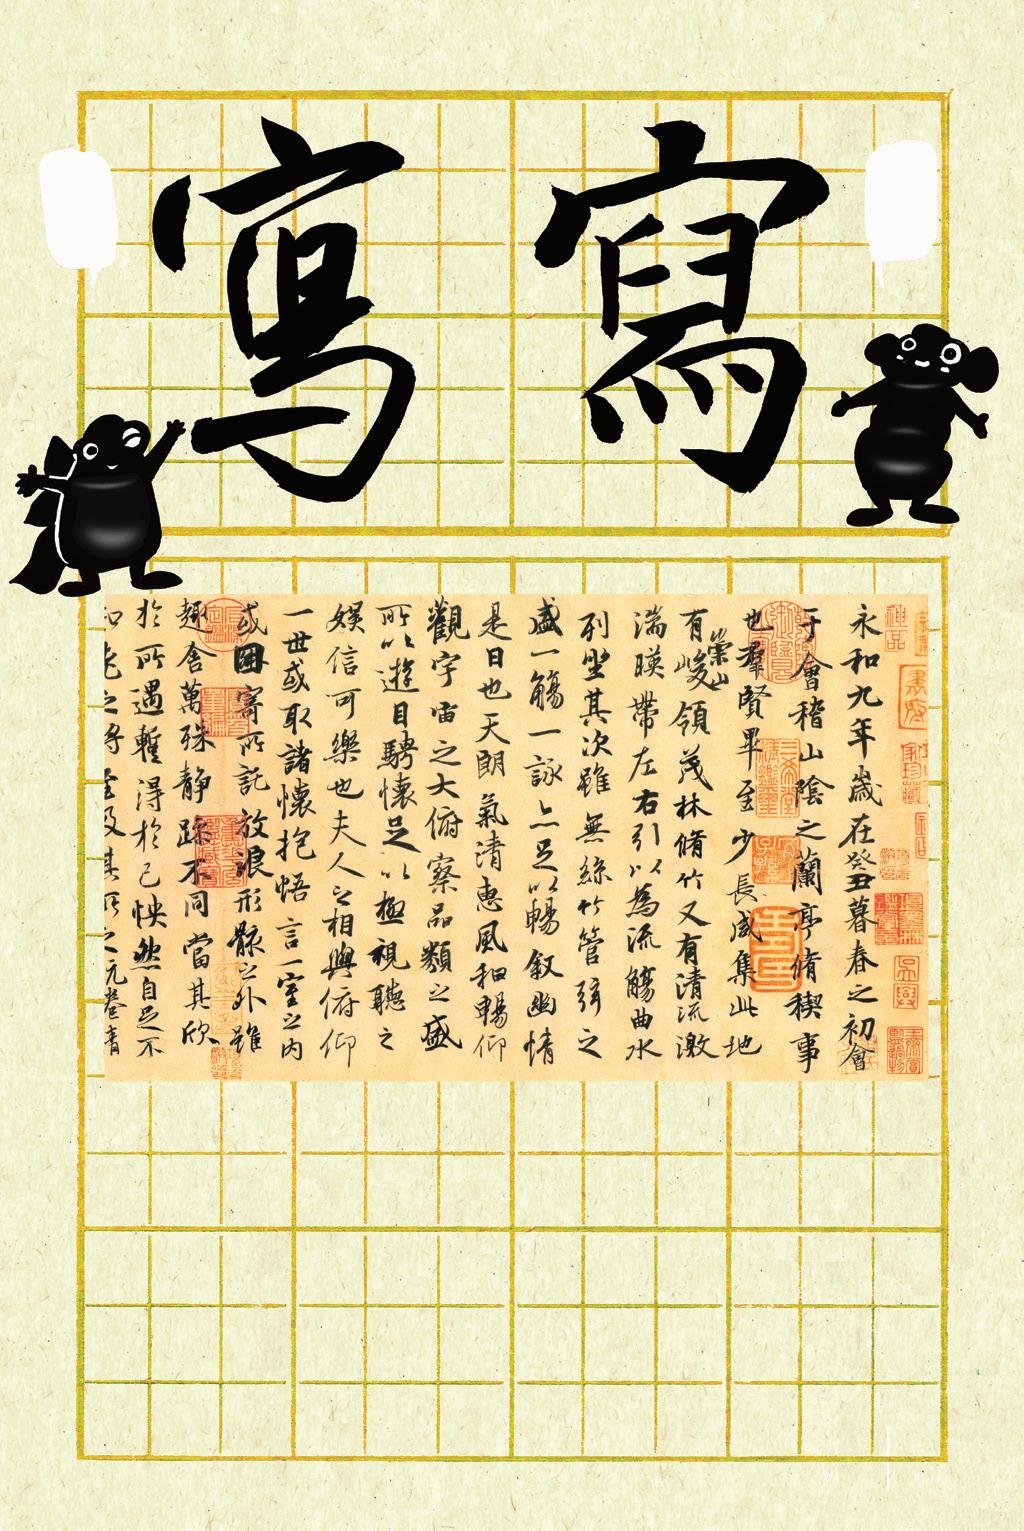 寫寫
永和九年歲在癸丑暮春之初會
于會稽山陰之蘭亭脩稧事
也羣賢畢至少長咸集此地
有崇山峻領茂林脩竹又有清流激
湍暎帶左右引以為流觴曲水
列坐其次雖無絲竹管弦之
盛一觴一詠亦足以暢敘幽情
是日也天朗氣清惠風和暢仰
觀宇宙之大俯察品類之盛
所以遊目騁懷足以極視聽之
娛信可樂也夫人之相與俯仰
一世或取諸懷抱悟言一室之內
或因寄所託放浪形骸之外雖
趣舍萬殊靜躁不同當其欣
於所遇暫得於己怏然自足不